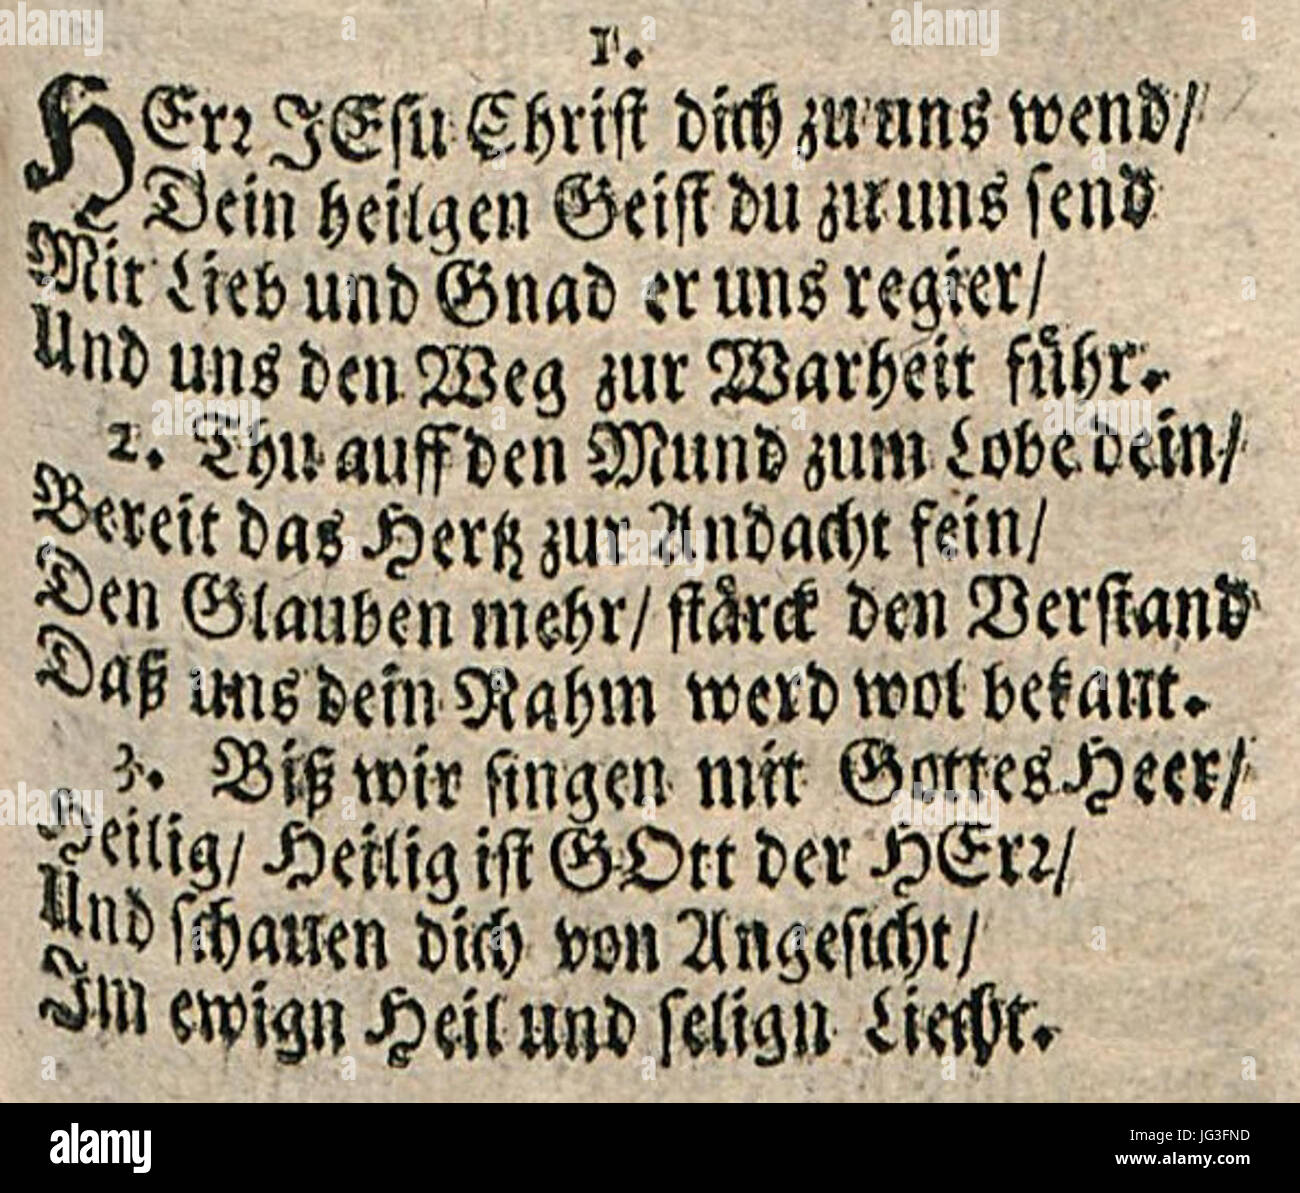 1.
HErr JEsu Christ dich zu uns wend/
Dein heilgen Geist du zu uns send
Mit Lieb und Gnad er uns regier/
Und uns den Weg zur Warheit führ.
2. Thu auff den Mund zum Lobe dein/
Bereit das Hertz zur Andacht fein/
Den Glauben mehr/ stärck den Verstand
Daß uns dein Nahm werd wol bekant.
3. Biß wir singen mit Gottes Heer/
Heilig/ Heilig ist GOtt der HErr/
Und schauen dich von Angesicht/
Im ewign Heil und selign Liecht.
alamy
Image ID: JG3FND
www.alamy.com